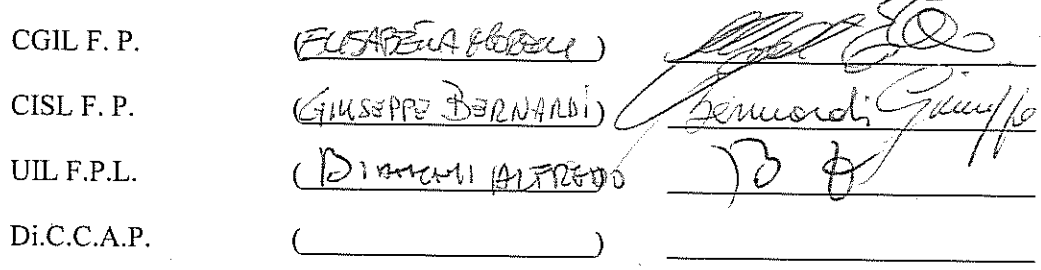 CGIL F. P. (ELISABETTA
CISL F. P. (GIUSEPPE BERNARDI) Bernardi Giuseppe
UIL F.P.L. (BIANCHI ALFREDO
Di.C.C.A.P. ( )